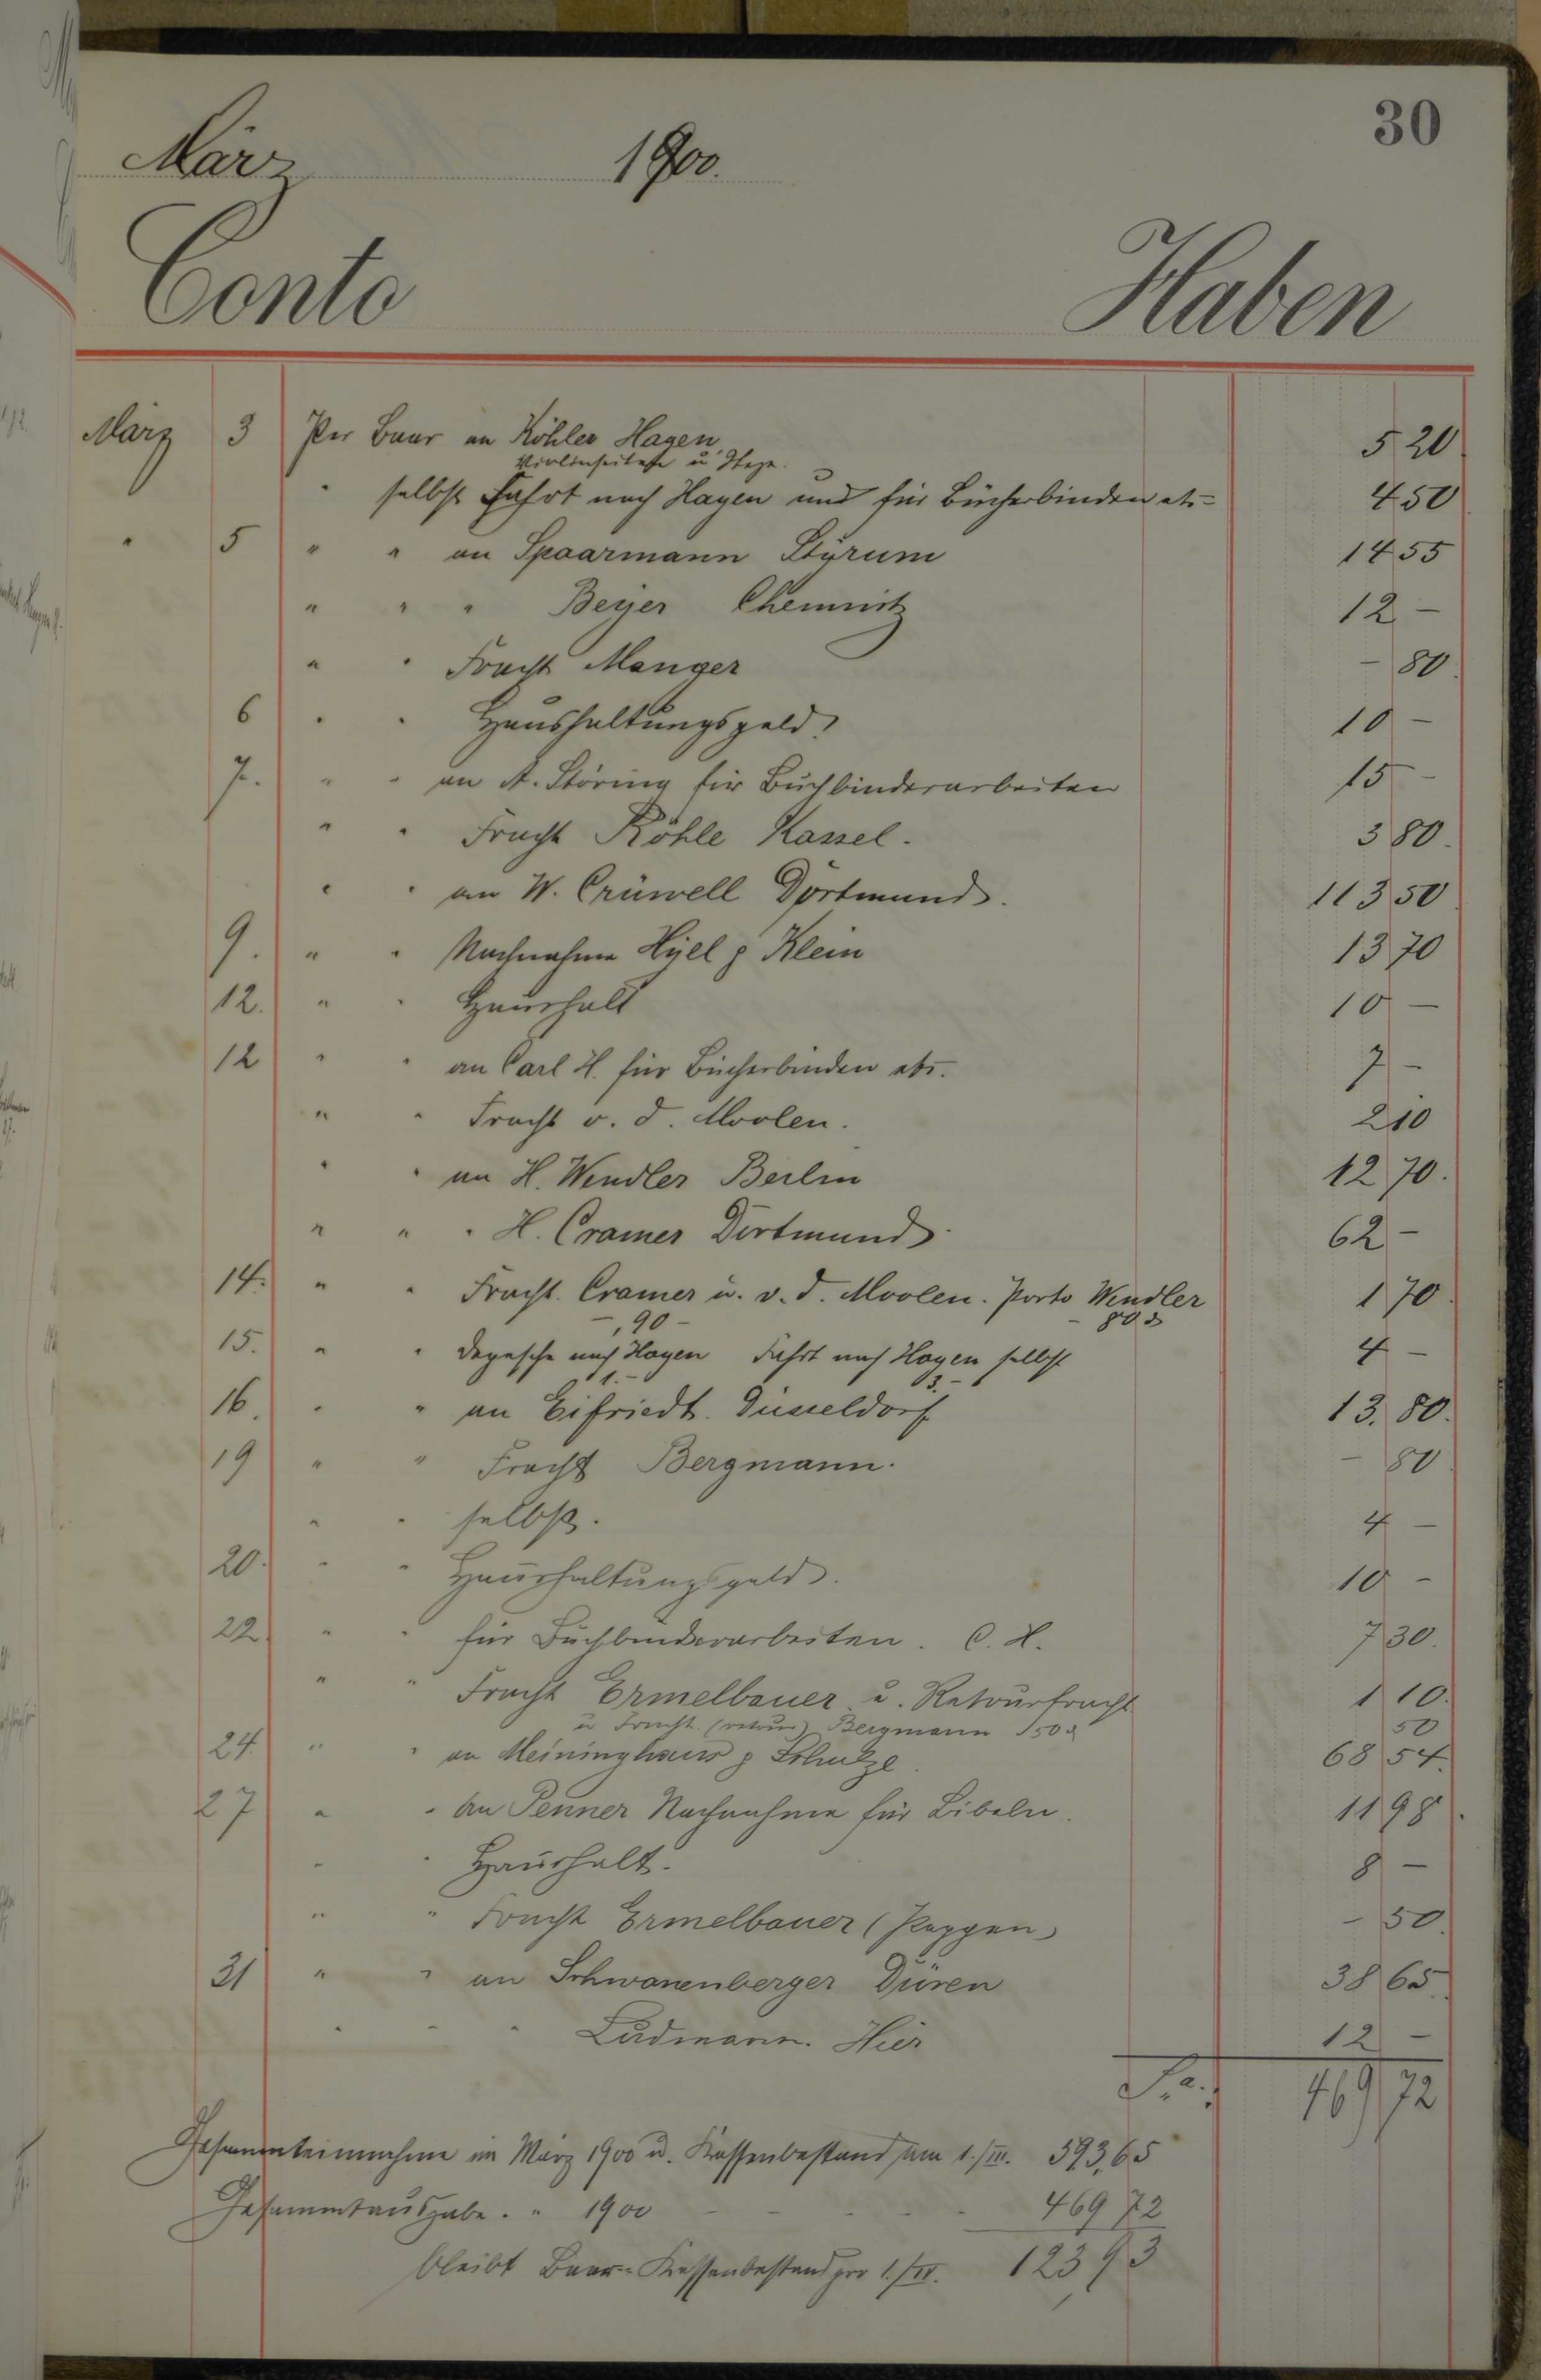 30
März 1900.
Conto Haben
März 3 Per Baar an Köhler Hagen 5 20
Violinseiten u Stege.
" selbst Fahrt nach Hagen und für Bücherbinden etc 4 50
" 5 " " an Spaarmann Styrum 14 55
" " " Beyer Chemnitz 12 –
" " Fracht Manger – 80.
6 " " Haushaltungsgeld. 10 –
7. " " an A. Störing für Buchbinderarbeiten 15 –
" " Fracht Röhle Kassel. 3 80.
" " an W. Crüwell Dortmund. 113 50
9. " " Nachnahme Hyll & Klein 13 70
12. " " Haushalt 10 –
12 " " an Carl H. für Bücherbinden etc. 7 –
" " Fracht v. d. Moolen. 2 10
" " an H. Wendler Berlin 12 70.
" " " H. Cramer Dortmund. 62 –
14. " " Fracht. Cramer u. v. d. Moolen. Porto Wendler 1 70.
–,90 – – 80 ₰
15. " " Depesche nach Hagen Fahrt nach Hagen selbst 4 –
1.– 3.–
16. " " an Eifriedt. Düsseldorf 13. 80.
19 " " Fracht Bergmann. – 80
" " selbst. 4 –
20. " " Haushaltungsgeld. 10 –
22. " " für Buchbinderarbeiten. C. H. 7 30.
" " Fracht Ermelbauer u. Retourfracht 1 10.
u Fracht (retour) Bergmann 50 ₰ 50
24. " " an Meininghaus & Schulze. 68 54.
27 " " An Penner Nachnahme für Bibeln. 11 98.
" " Haushalt. 8 –
" " Fracht Ermelbauer (Pappen) – 50.
31 " " an Schwanenberger Düren 38 65
" " " Ludmann. Hier 12 –
Sa. 469 72
Gesammteinnahme im März 1900 u. Kassenbestand am 1./III. 593,65
Gesammtausgabe. " 1900 – – – – 469 72
bleibt Baar-Kassenbestand pro 1./IV. 123 93